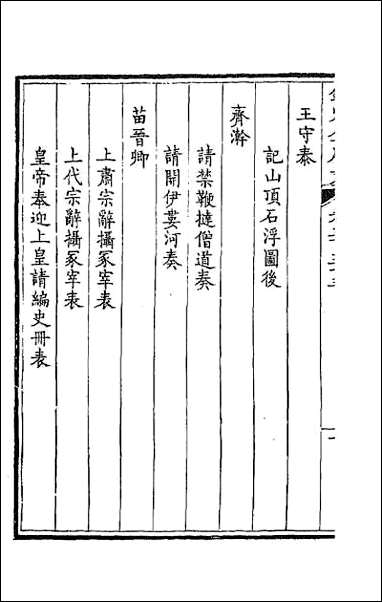 王守泰
記山頂石浮圖後
齊澣
請禁鞭撻僧道奏
請開伊婁河奏
苗晉卿
上肅宗辭攝冢宰表
上代宗辭攝冢宰表
皇帝奉迎上皇請編史冊表